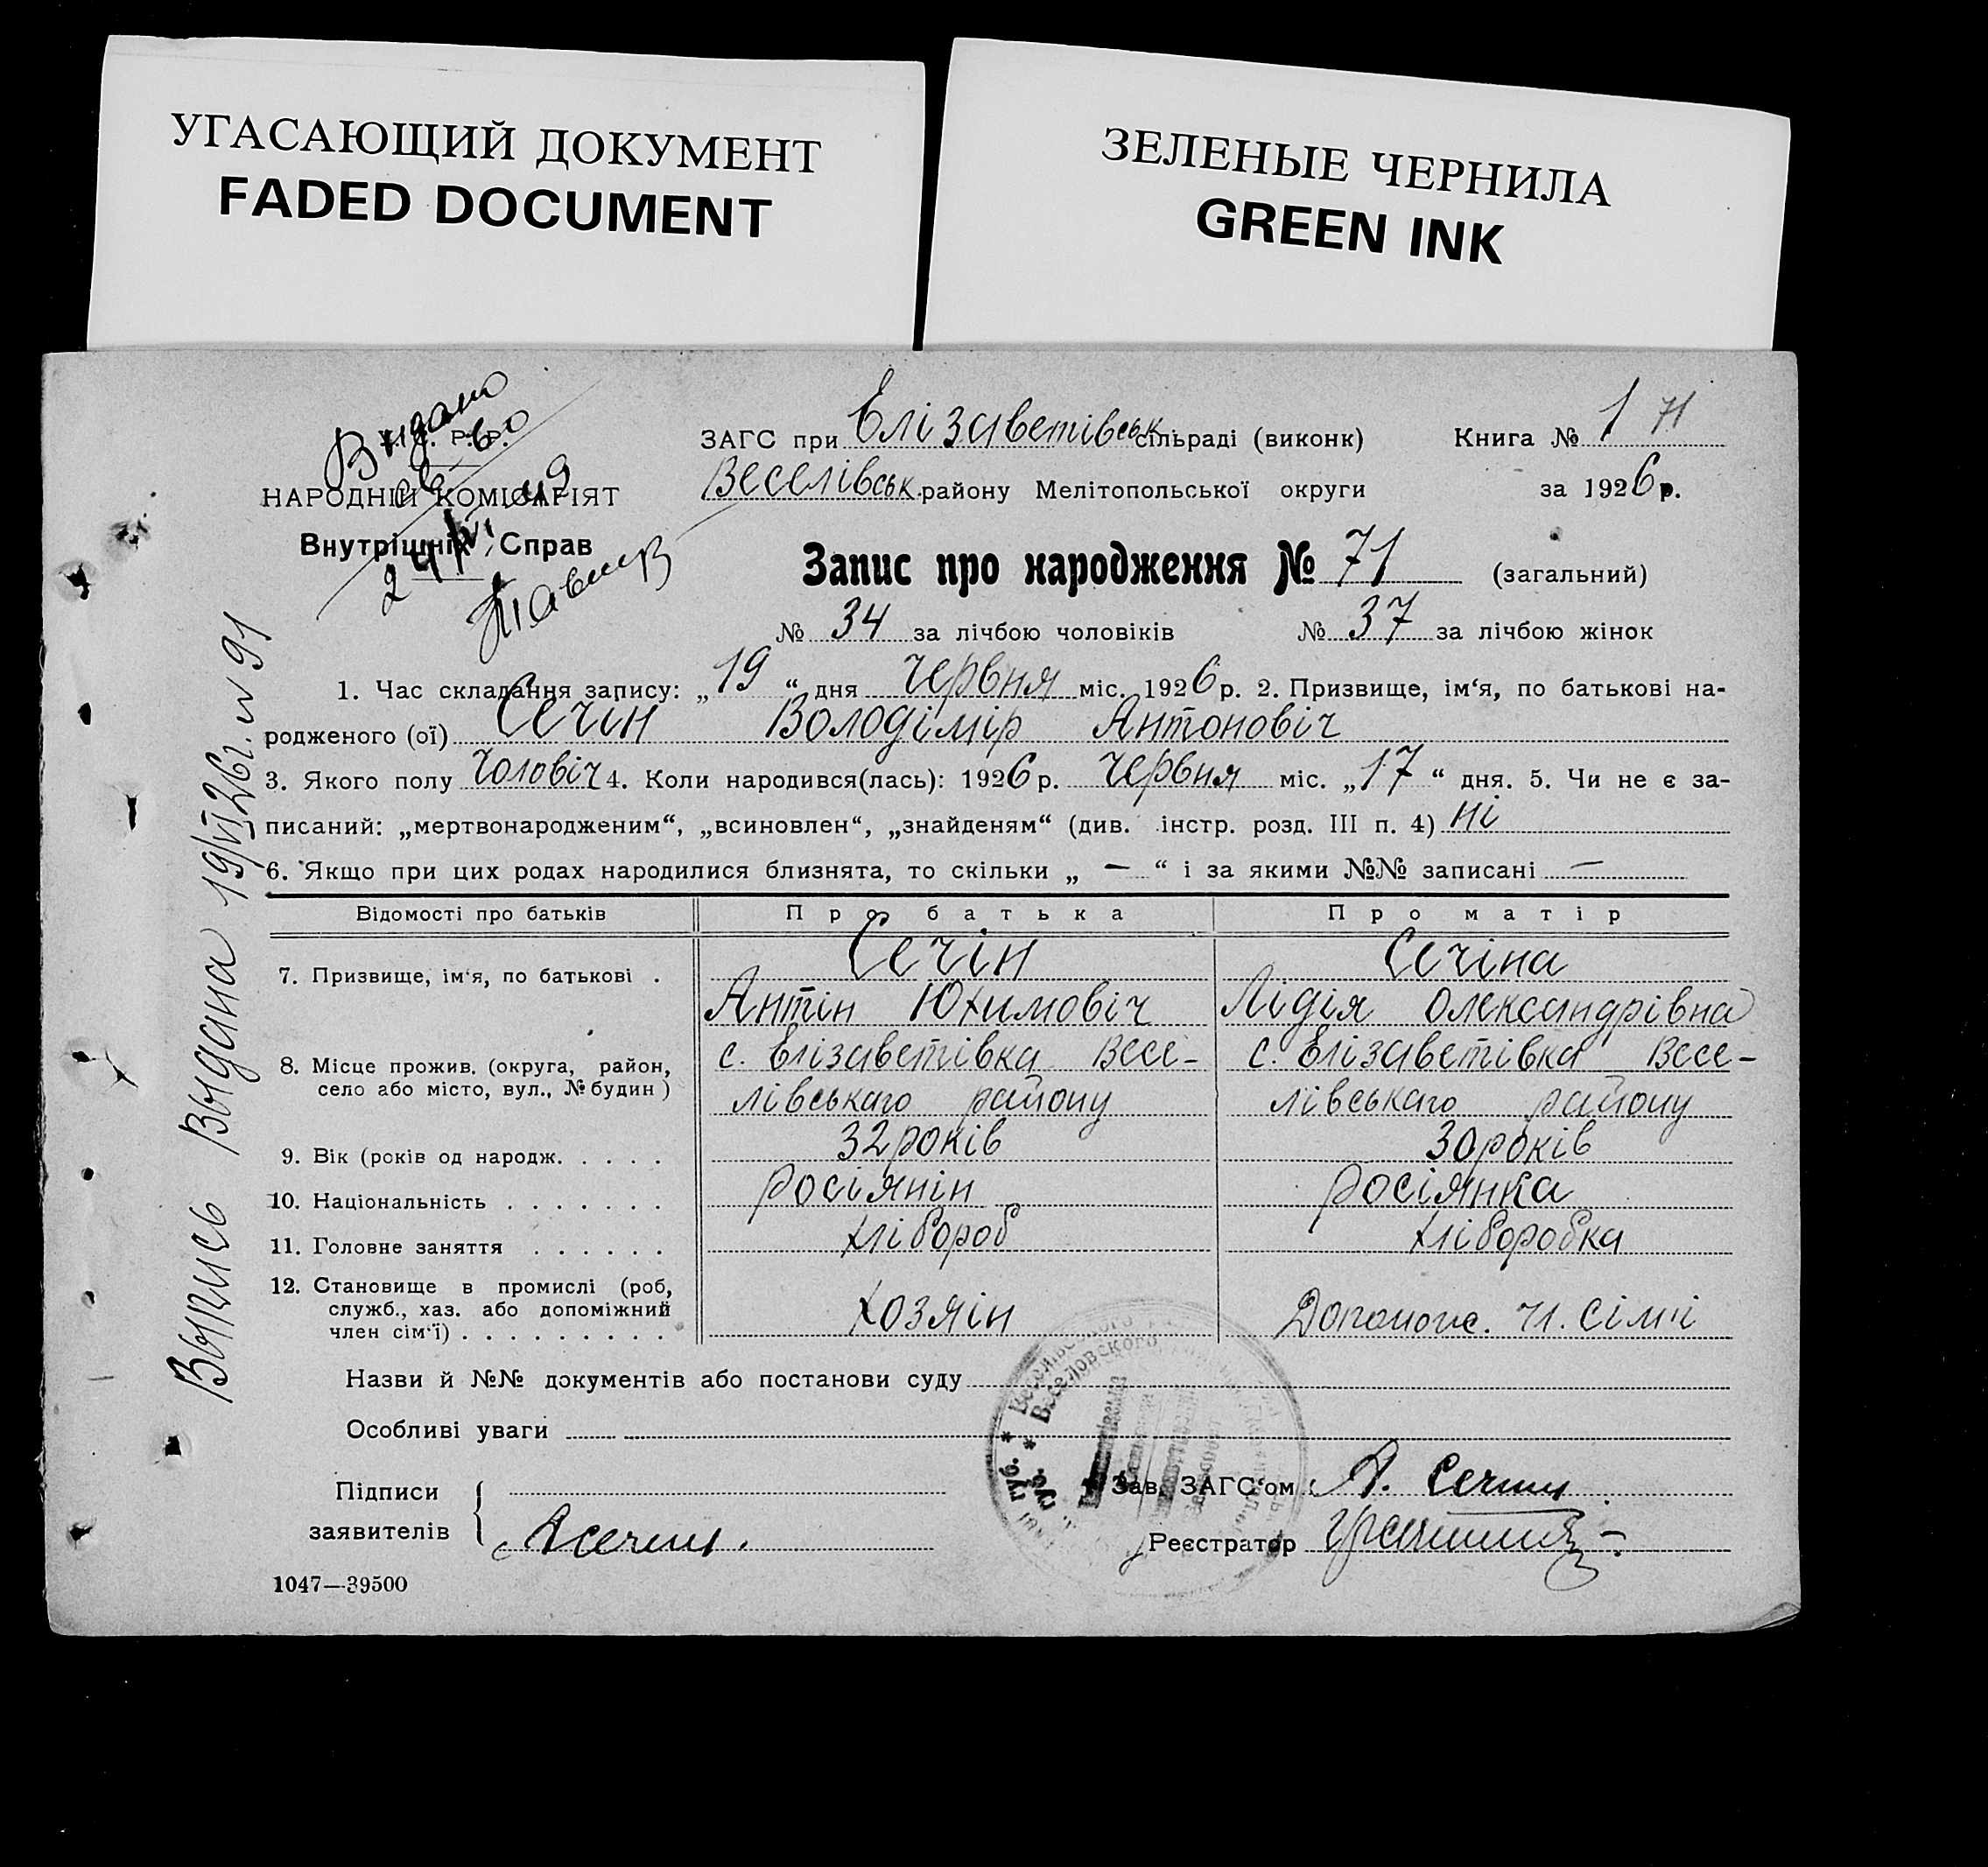 УГАСАЮЩИЙ ДОКУМЕНТ
FADED DOCUMENT
ЗЕЛЕНЫЕ ЧЕРНИЛА
GREEN INK
Видано
св-во
24/VI 49
У. С. Р. Р.
НАРОДНІЙ КОМІСАРІЯТ
Внутрішніх Справ
ЗАГС при Елізаветівськ сільраді (виконк) Книга № 1 71
Веселівськ. району Мелітопольської округи за 1926 р.
Запис про народження № 71 (загальний)
№ 34 за лічбою чоловіків № 37 за лічбою жінок
1. Час складання запису: „19“ дня Червня міс. 1926 р. 2. Призвище, ім‘я, по батькові на-
родженого (ої) Сечін Володімір Антоновіч
3. Якого полу Чоловіч 4. Коли народився(лась): 1926 р. Червня міс. „17“ дня. 5. Чи не є за-
писаний: „мертвонародженим“, „всиновлен“, „знайденям“ (див. інстр. розд. III п. 4) ні
6. Якщо при цих родах народилися близнята, то скільки „ — “ і за якими №№ записані —
Відомості про батьків Про батька Про матір
7. Призвище, ім‘я, по батькові . Сечін Сечіна
Антін Юхимовіч Лідія Олександрівна
8. Місце прожив. (округа, район, с. Елізаветівка Весе- с. Елізаветівка Весе-
село або місто, вул., № будин) лівськаго району лівськаго району
9. Вік (років од народж. . . . . . 32 років 30 років
10. Національність . . . . . . . росіянін росіянка
11. Головне заняття . . . . . . хлібороб хліборобка
12. Становище в промислі (роб,
служб., хаз. або допоміжний хозяін Допомож. чл. сімї
член сім‘ї) . . . . . . . . .
Назви й №№ документів або постанови суду
Особливі уваги
Підписи
заявителів АСечин.
Зав. ЗАГС‘ом А. Сечин
Реєстратор
1047—39500
Выпись Выдана 19/VI 26 г. № 91
Веселовского
губ. *